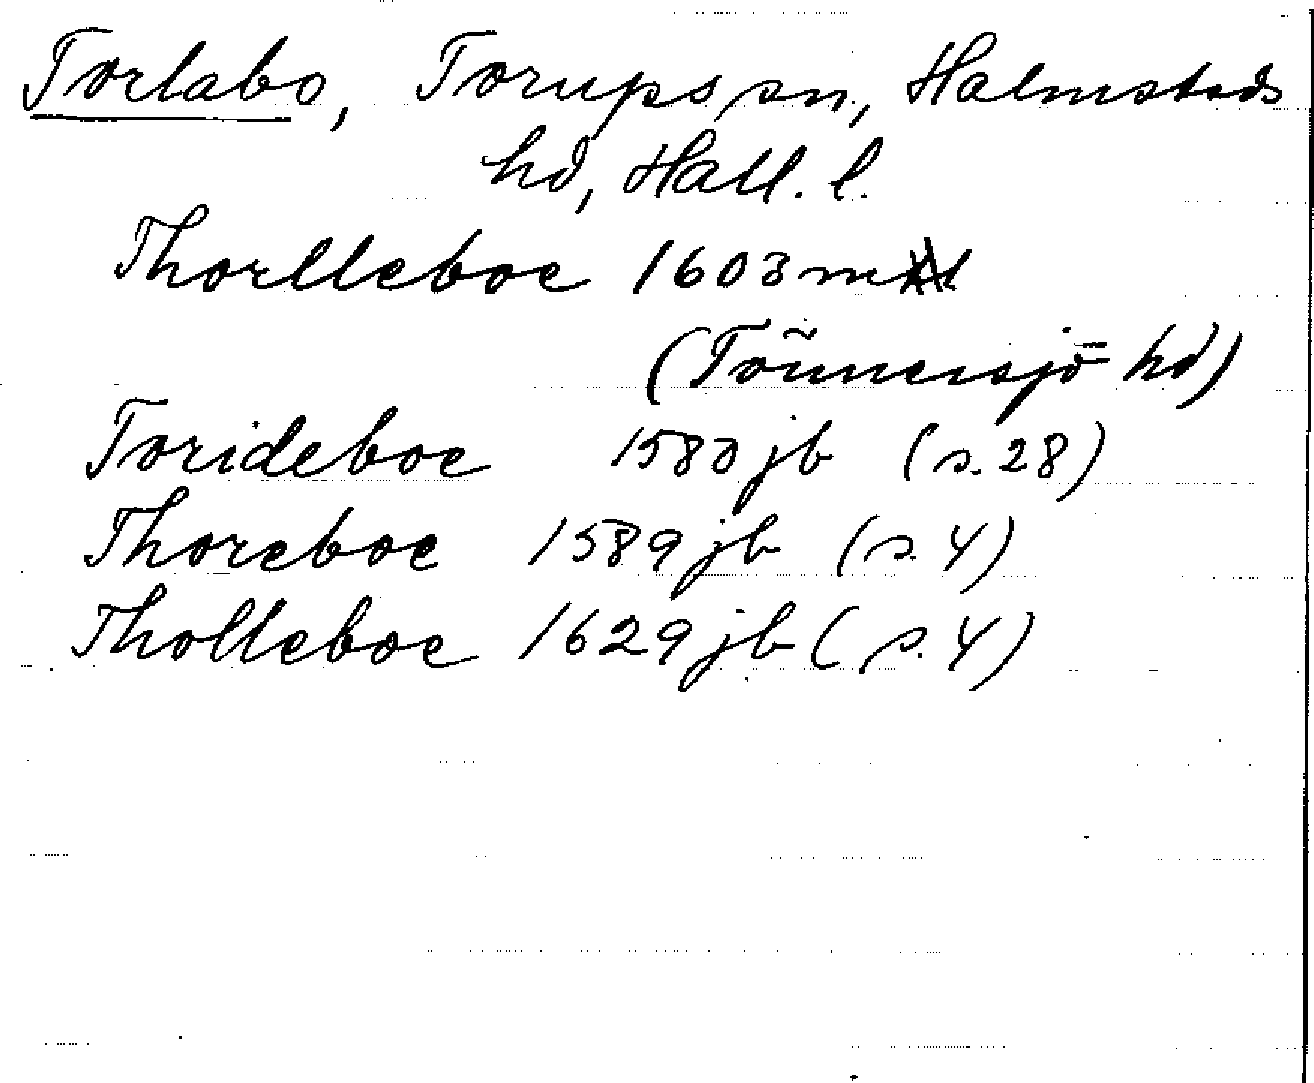 Torlabo, Torups sn, Halmstads
hd, Hall. l.
Thorlleboe 1603
(Tönnersjö hd)
Torideboe 1580 jb (s. 28)
Thoreboe 1589 jb (s. 4)
Tholleboe 1629 jb (s. 4)